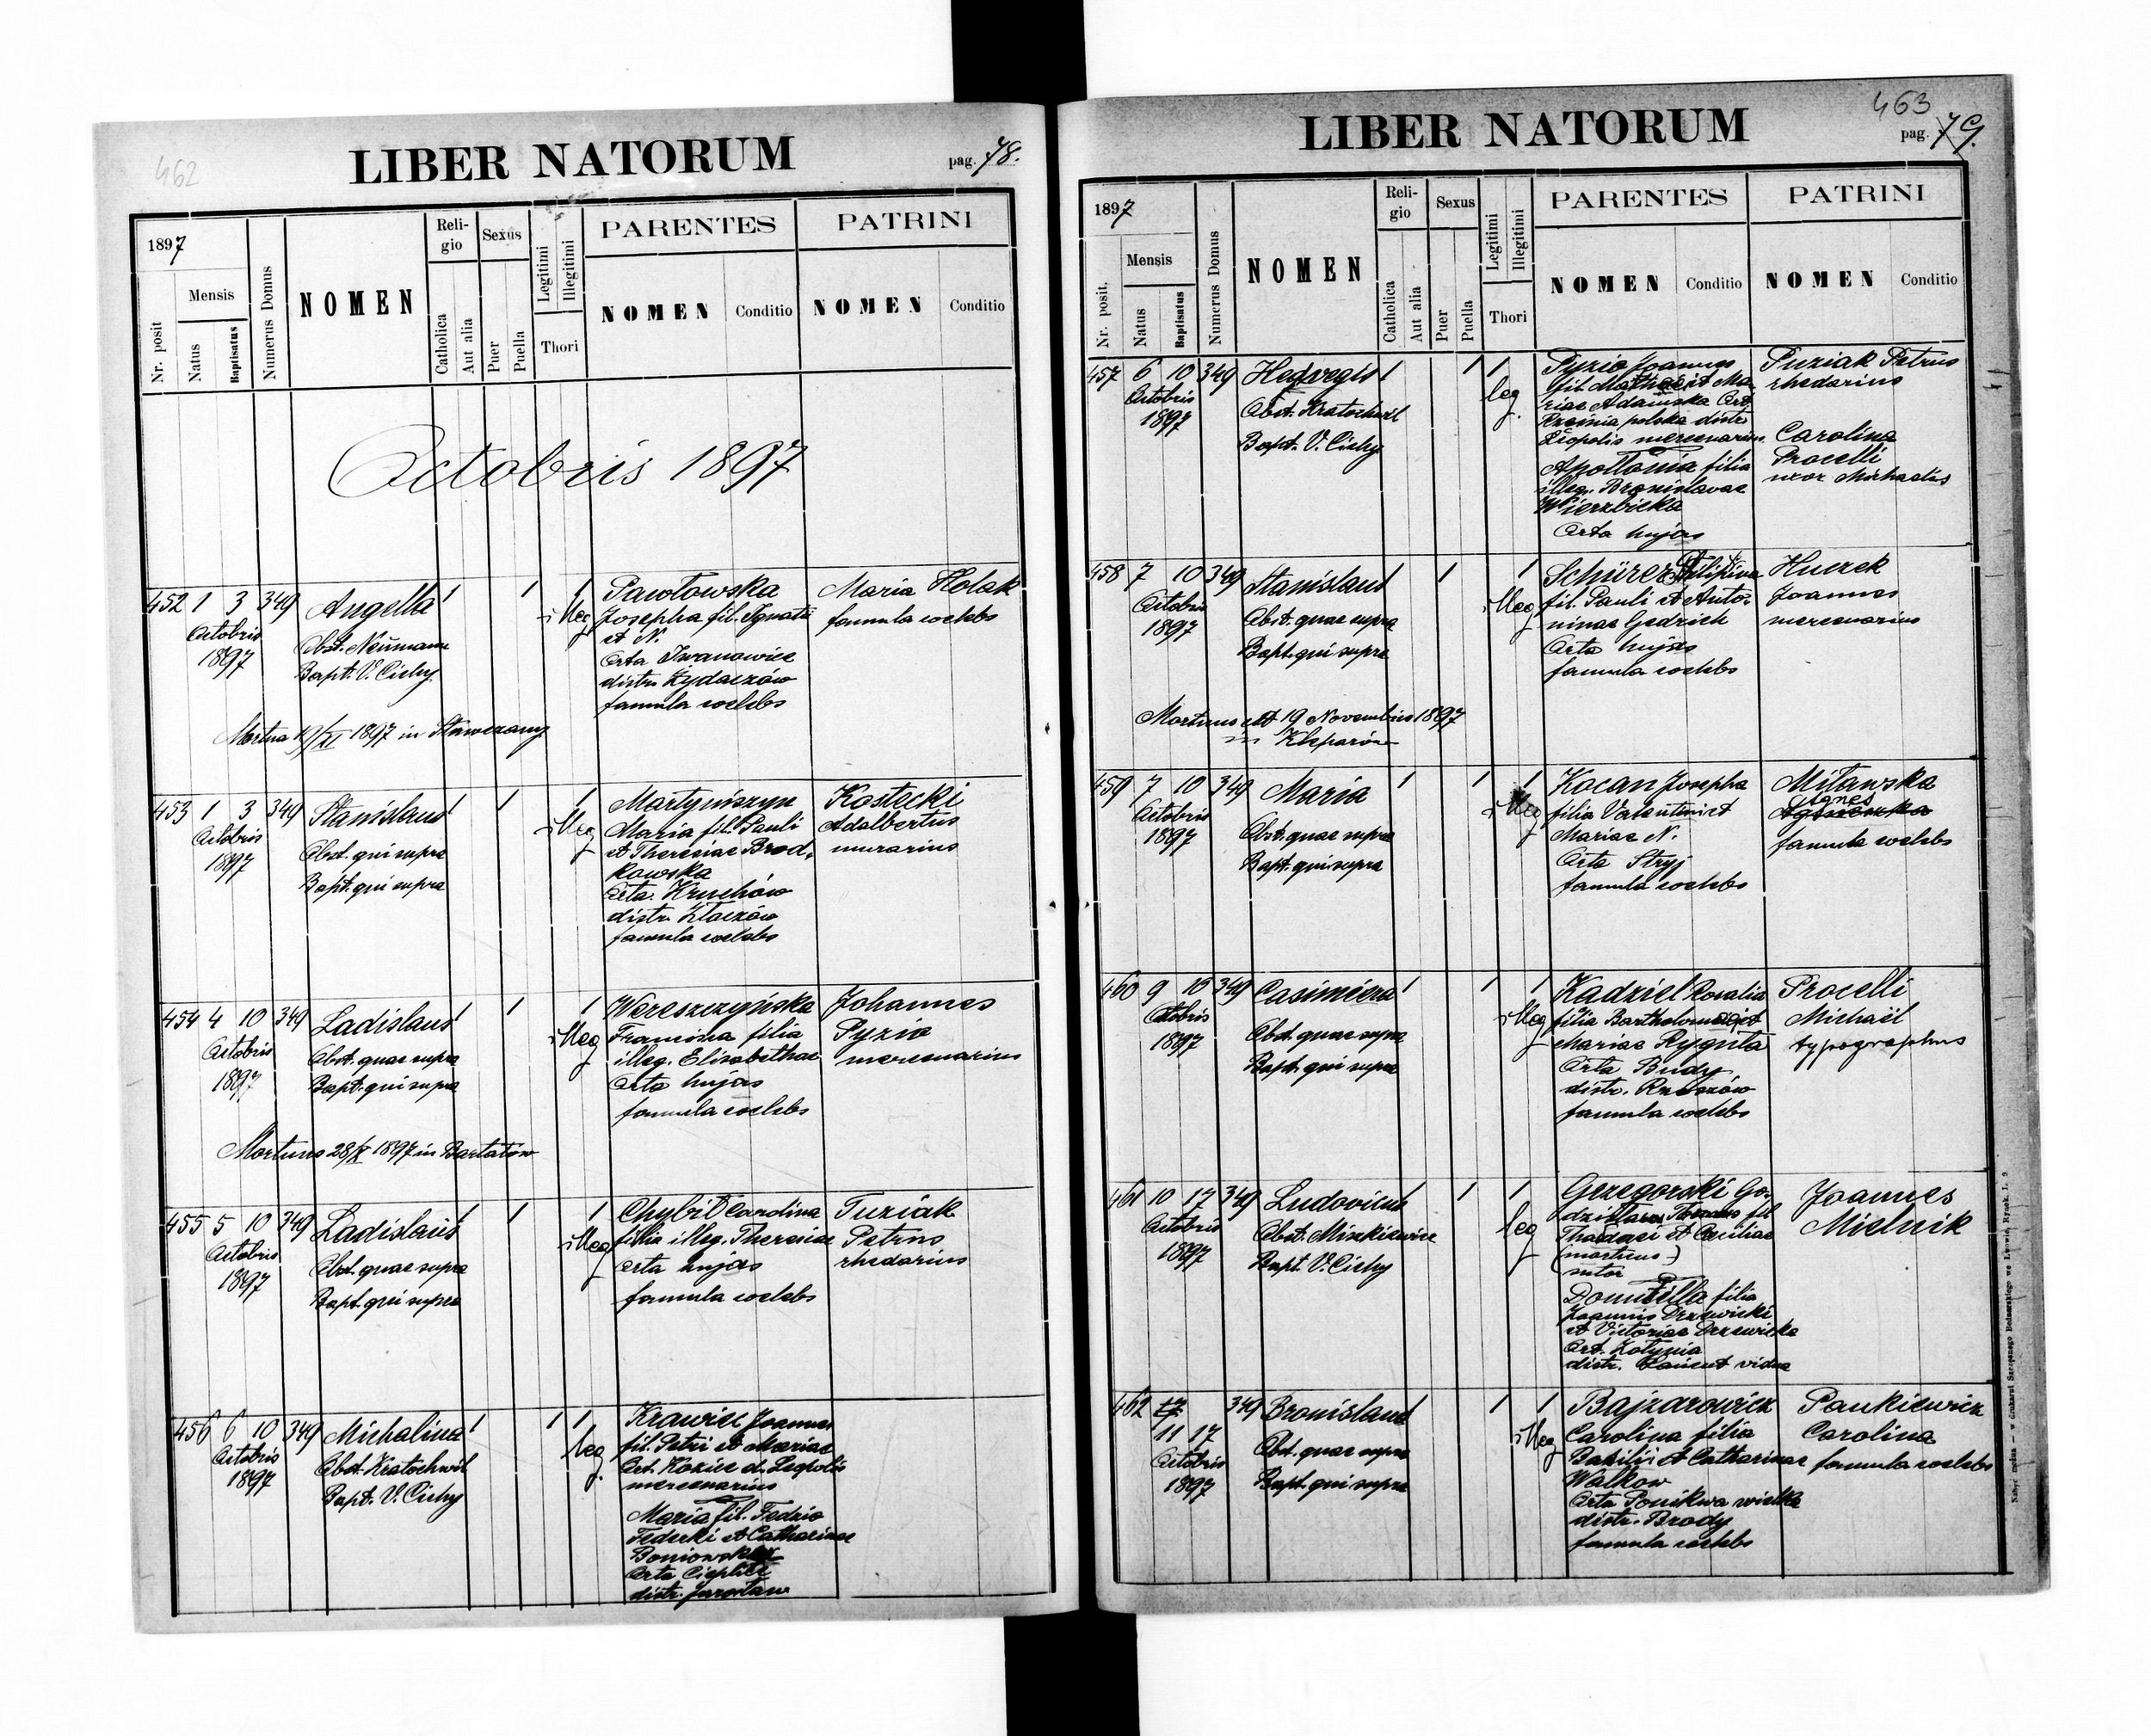 462
LIBER NATORUM
pag. 78.
1897
Nr. posit
Mensis
Natus
Baptisatus
Numerus Domus
NOMEN
Reli-
gio
Catholica
Aut alia
Sexus
Puer
Puella
Legitimi
Illegitimi
Thori
PARENTES
NOMEN
Conditio
PATRINI
NOMEN
Conditio
Octobris 1897
452 1 3 349
Octobris
1897
Angella
Obst. Neumann
Bapt. V. Cichy
1 1 1
illeg
Pawłowska
Josepha fil. Ignatii
et N.
Orta Iwanowice
distr. Żydaczów
famula coelebs
Maria Holak
famula coelebs
Mortua 19/XI 1897 in Stawczany
453 1 3 349
Octobris
1897
Stanislaus
Obst. qui supra
Bapt. qui supra
1 1 1
illeg
Martyniszyn
Maria fil. Pauli
et Theresiae Brod-
kowska
Orta. Kruchów
distr. Złoczów
famula coelebs
Kostecki
Adalbertus
murarius
454 4 10 349
Octobris
1897
Ladislaus
Obst. quae supra
Bapt. qui supra
1 1 1
illeg
Wereszczyńska
Francisca filia
illeg. Elisabethae
Orta hujas
famula coelebs
Johannes
Pyzio
mercenarius
Mortuus 28/X 1897 in Bartatów
455 5 10 349
Octobris
1897
Ladislaus
Obst. quae supra
Bapt. qui supra
1 1 1
illeg
Chybił Carolina
filia illeg. Theresiae
orta hujas
famula coelebs
Tuziak
Petrus
rhedarius
456 6 10 349
Octobris
1897
Michalina
Obst. Kratochwil
Bapt. V. Cichy
1 1 1
leg
Krawiec Joannes
fil. Petri et Mariae
Ort. Kozice d. Leopolis
mercenarius
Maria fil. Fedzio
Federki et Catharinae
Orta Cieplice
distr. Jarosław
463
LIBER NATORUM
pag. 79.
1897
Nr. posit.
Mensis
Natus
Baptisatus
Numerus Domus
NOMEN
Reli-
gio
Catholica
Aut alia
Sexus
Puer
Puella
Legitimi
Illegitimi
Thori
PARENTES
NOMEN
Conditio
PATRINI
NOMEN
Conditio
457 6 10 349
Octobris
1897
Hedvegis
Obst. Kratochwil
Bapt. V. Cichy
1 1 1
leg.
Pyzio Joannes
fil. Mathaei et Ma-
riae Adamska Ort.
Rzeinia polska distr.
Leopolis mercenarius
Apollonia filia
illeg. Bronislavae
Wierzbicka
Orta hujas
Puziak Petrus
rhedarius
Carolina
Procelli
uxor Michaelis
458 7 10 349
Octobris
1897
Stanislaus
Obst. quae supra
Bapt. qui supra
1 1 1
illeg
Schürer
fil. Pauli et Anto-
ninae Gedrich
Orta hujas
famula coelebs
Huczek
Joannes
mercenarius
Mortuus est 19 Novembris 1897
in Kleparów
459 7 10 349
Octobris
1897
Maria
Obst. quae supra
Bapt. qui supra
1 1 1
illeg
Kocan Josepha
filia Valentini et
Mariae N.
Orta Stryj
famula coelebs
Miławska
Agnes
Agnieszka
famula coelebs
460 9 10 349
Octobris
1897
Casimiera
Obst. quae supra
Bapt. qui supra
1 1 1
illeg
Kadziel Rosalia
filia Bartholomaei et
Mariae Ryguła
Orta Budy
distr. Rzeszów
famula coelebs
Procelli
Michaël
typographus
461 10 17 349
Octobris
1897
Ludovicus
Obst. Miszkiewicz
Bapt. V. Cichy
1 1 1
leg
Gezegorski Go-
dzisław Thomas fil.
Thadaei et Ceciliae
(mortuus)
sutor
Domitella filia
Joannis Drzewicki
et Victoriae Drzewicka
Ort. Kotynia
distr. Łańcut vidua
Joannes
Mielnik
462 17 349
11 17
Octobris
1897
Bronislaus
Obst. quae supra
Bapt. qui supra
1 1 1
illeg
Bajzarowicz
Carolina filia
Basilii et Catharinae
Walkow
Orta Ponikwa wielka
distr. Brody
famula coelebs
Pankiewicz
Carolina
famula coelebs